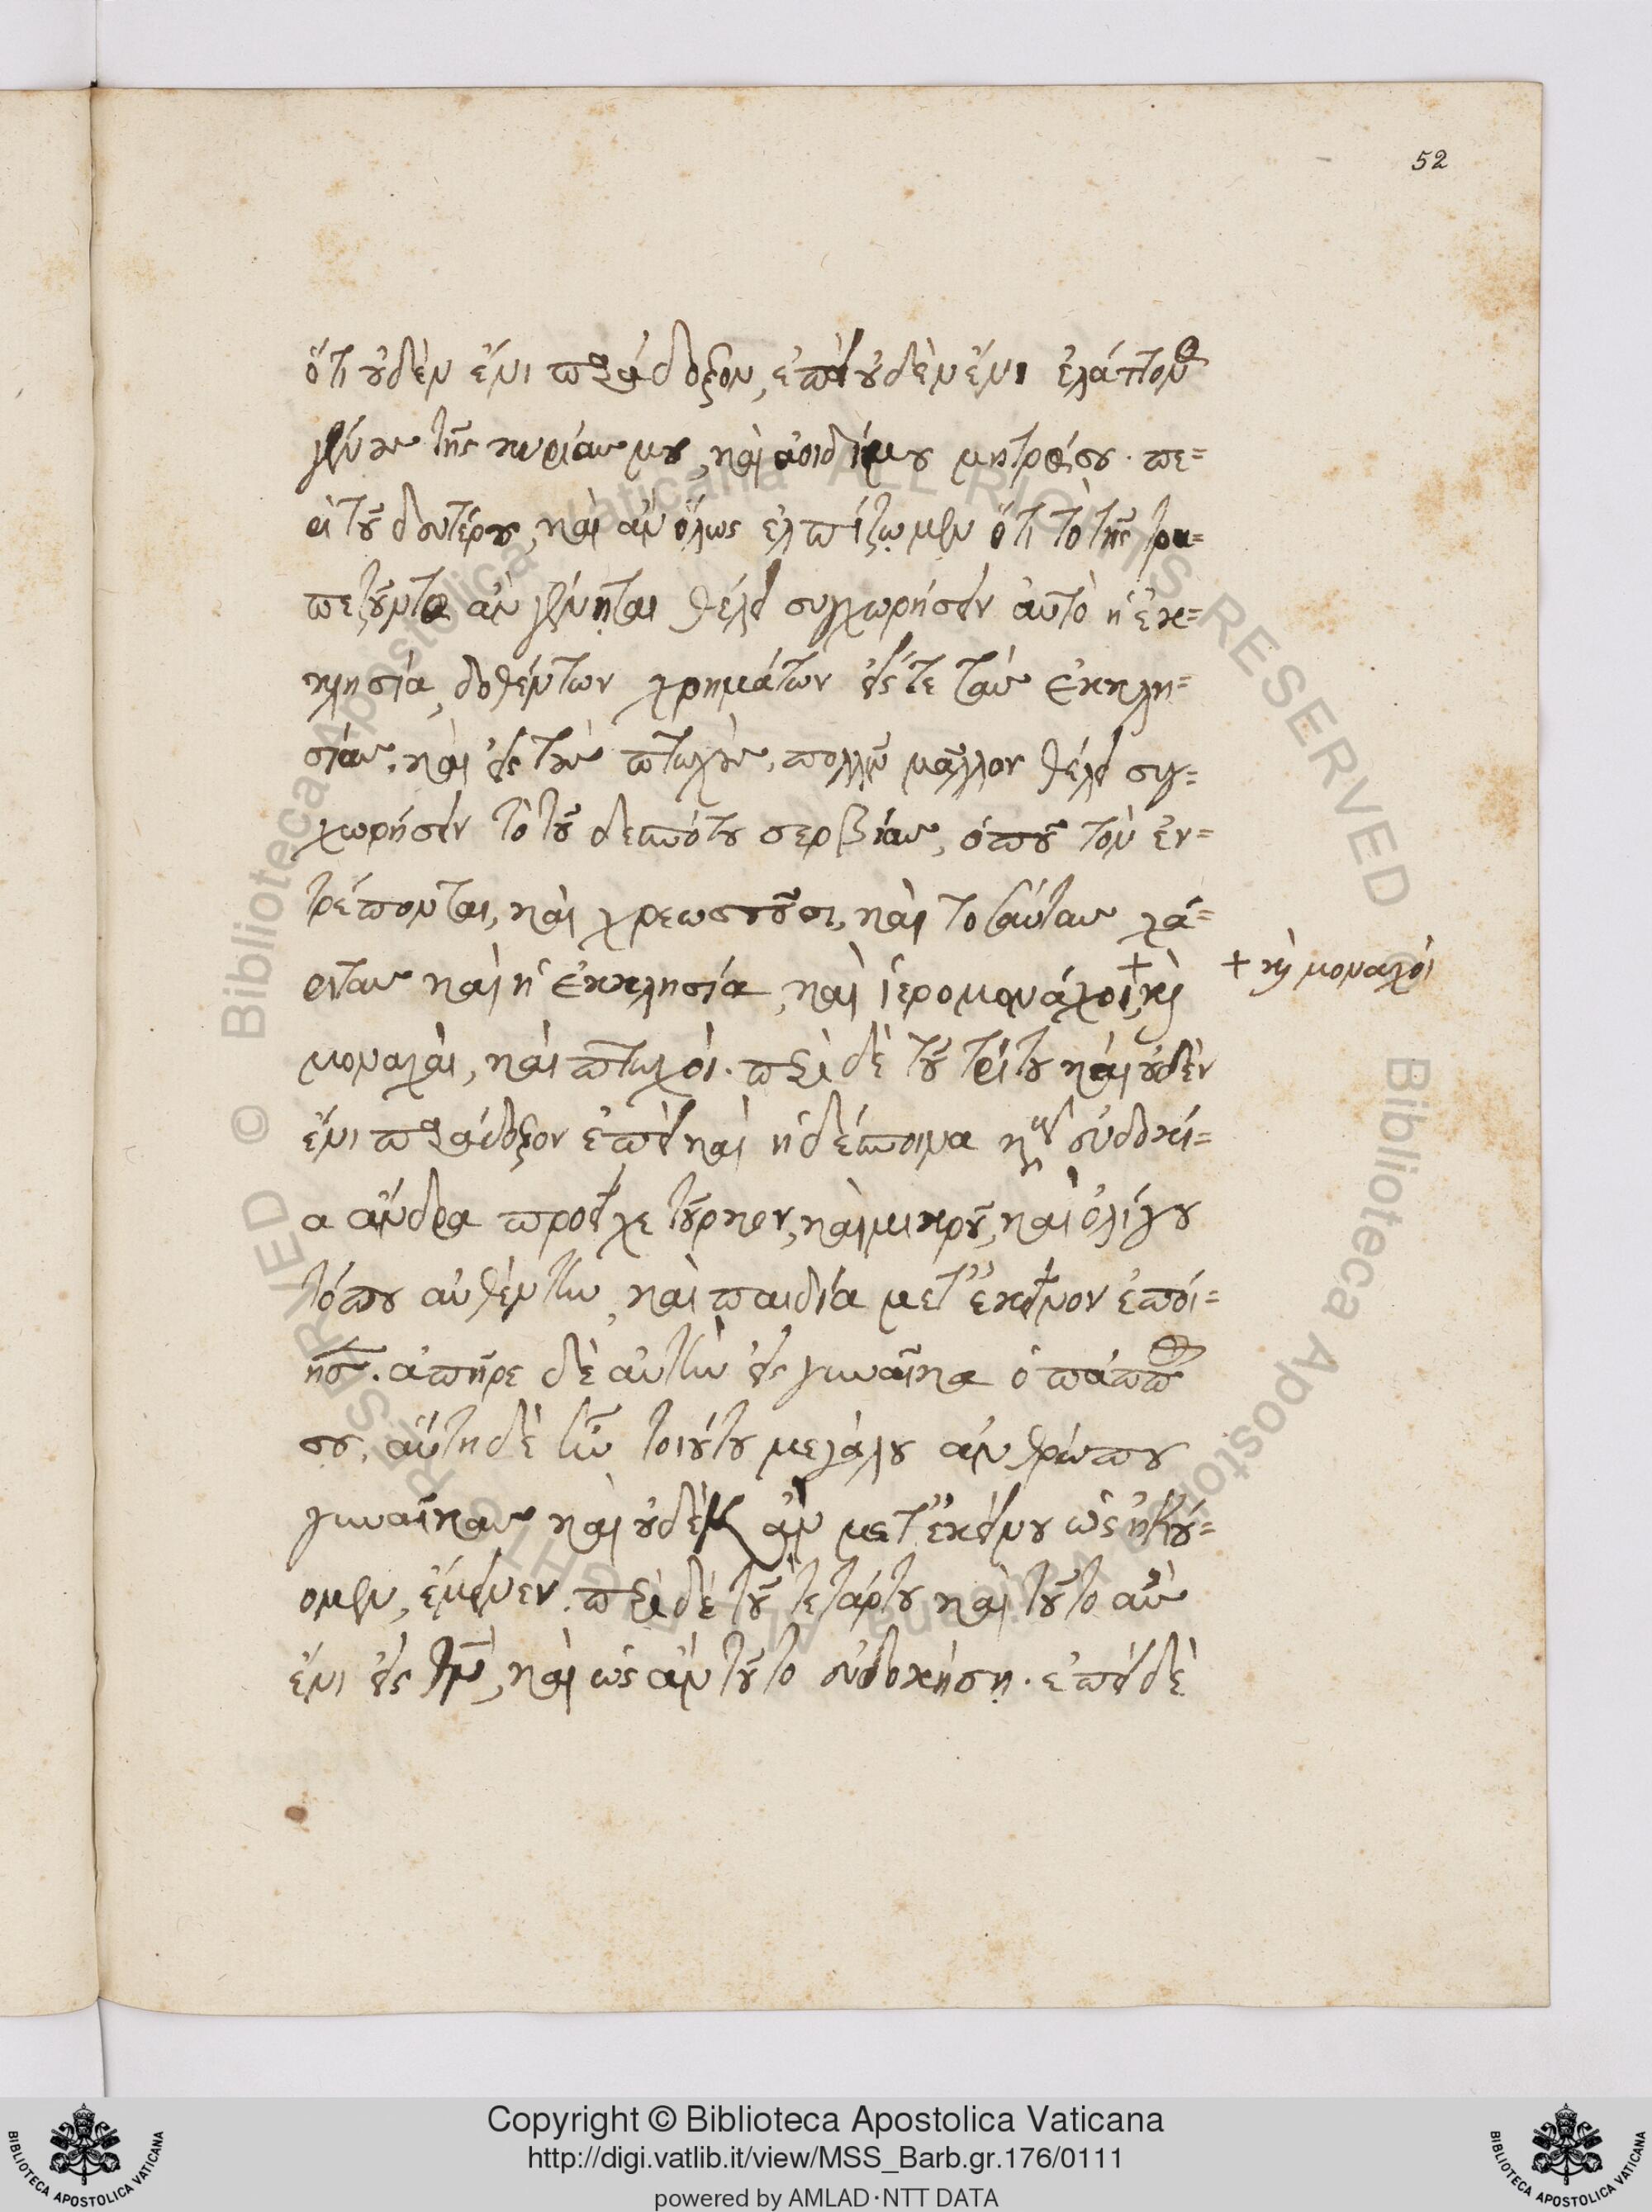 52
ὅτι οὐδὲν ἔνι παράδοξον, ἐπεὶ οὐδὲν ἔνι ἐλάττονος
γένους τῆς κυρίας μου, καὶ ἀοιδίμου μητρός σου. πε=
ρὶ τοῦ δευτέρου, καὶ ἂν ὅλως ἐλπίζωμεν ὅτι τὸ τῆς τρα=
πεζοῦντος ἂν γένηται θέλει συγχωρήσειν αὐτὸ ἡ ἐκ=
κλησία, δοθέντων χρημάτων εἴς τε τὰς ἐκκλη=
σίας, καὶ εἰς τοὺς πτωχοὺς, πολλῷ μᾶλλον θέλει συγ=
χωρήσειν τὸ τοῦ δεσπότου σερβίας, ὁποῦ τὸν ἐν=
τρέπονται, καὶ χρεωστοῦσι, καὶ τοσαύτας χά=
ριτας καὶ ἡ ἐκκλησία, καὶ ἱερομονάχοι, + καὶ
+ καὶ μοναχοὶ
μοναχαὶ, καὶ πτωχοὶ. περὶ δὲ τοῦ τρίτου καὶ οὐδὲν
ἔνι παράδοξον ἐπεὶ καὶ ἡ δέσποινα κυρὰ εὐδοκί=
α ἄνδρα προεῖχε τοῦρκον, καὶ μικροῦ, καὶ ὀλίγου
τόπου αὐθέντην, καὶ παιδία μετ' ἐκεῖνον ἐποί=
ησε. ἀπῆρε δὲ αὐτὴν εἰς γυναῖκα ὁ πάππος
σου. αὕτη δὲ ἦν τοιούτου μεγάλου ἀνθρώπου
γυναῖκα καὶ οὐδὲ ἂν μετ' ἐκείνου ὡς ἠκού=
ομεν, ἔμεινεν. περὶ δὲ τοῦ τετάρτου καὶ τοῦτο ἂς
ἔνι εἰς τὸν θεὸν, καὶ ὡς ἂν τοῦτο εὐδοκήσῃ. ἐπεὶ δὲ
Copyright © Biblioteca Apostolica Vaticana
http://digi.vatlib.it/view/MSS_Barb.gr.176/0111
powered by AMLAD·NTT DATA